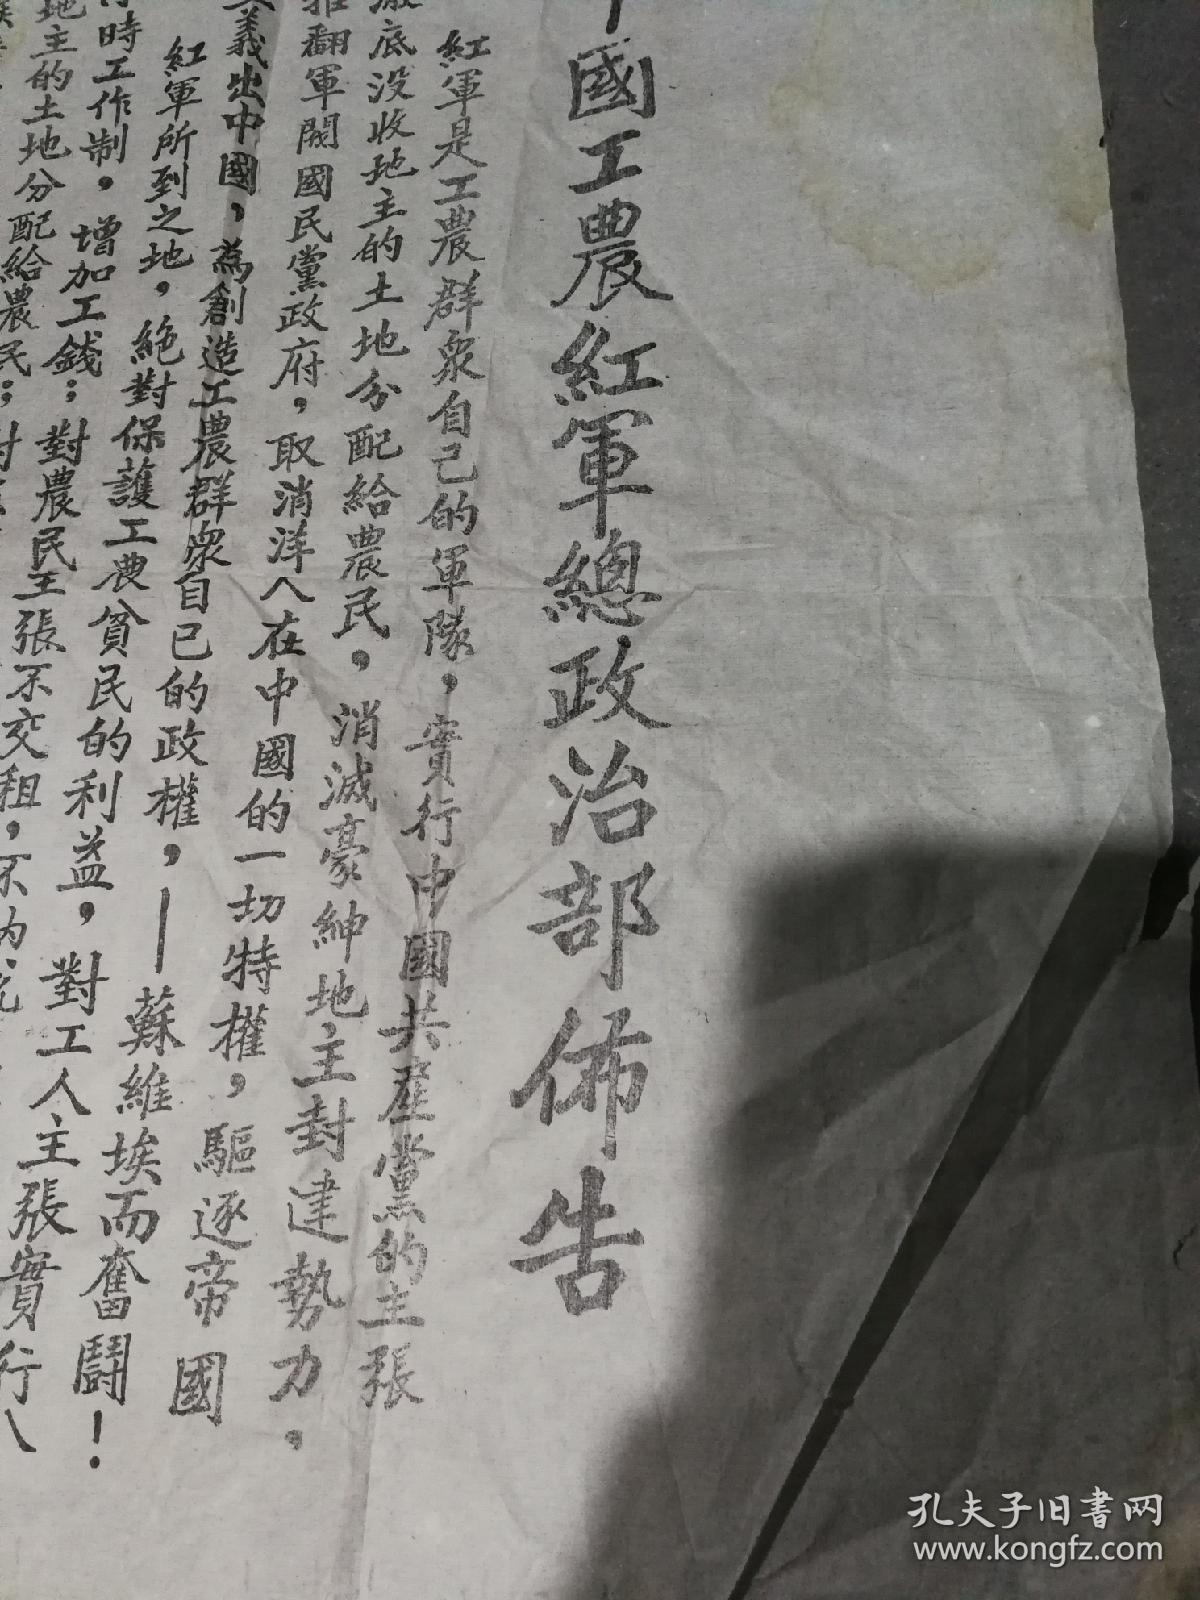 國工農紅軍總政治部佈告
紅軍是工農群衆自己的軍隊，實行中國共產黨的主張
底没收地主的土地分配給農民，消滅豪紳地主封建勢力，
推翻軍閥國民黨政府，取消洋人在中國的一切特權，驅逐帝國
義出中國，為創造工農群衆自己的政權，—蘇維埃而奮鬪！
紅軍所到之地，絶對保護工農貧民的利益，對工人主張實行八
時工作制，增加工錢；對農民主張不交租，不
地主的土地分配給農民；對
孔夫子旧书网
www.kongfz.com